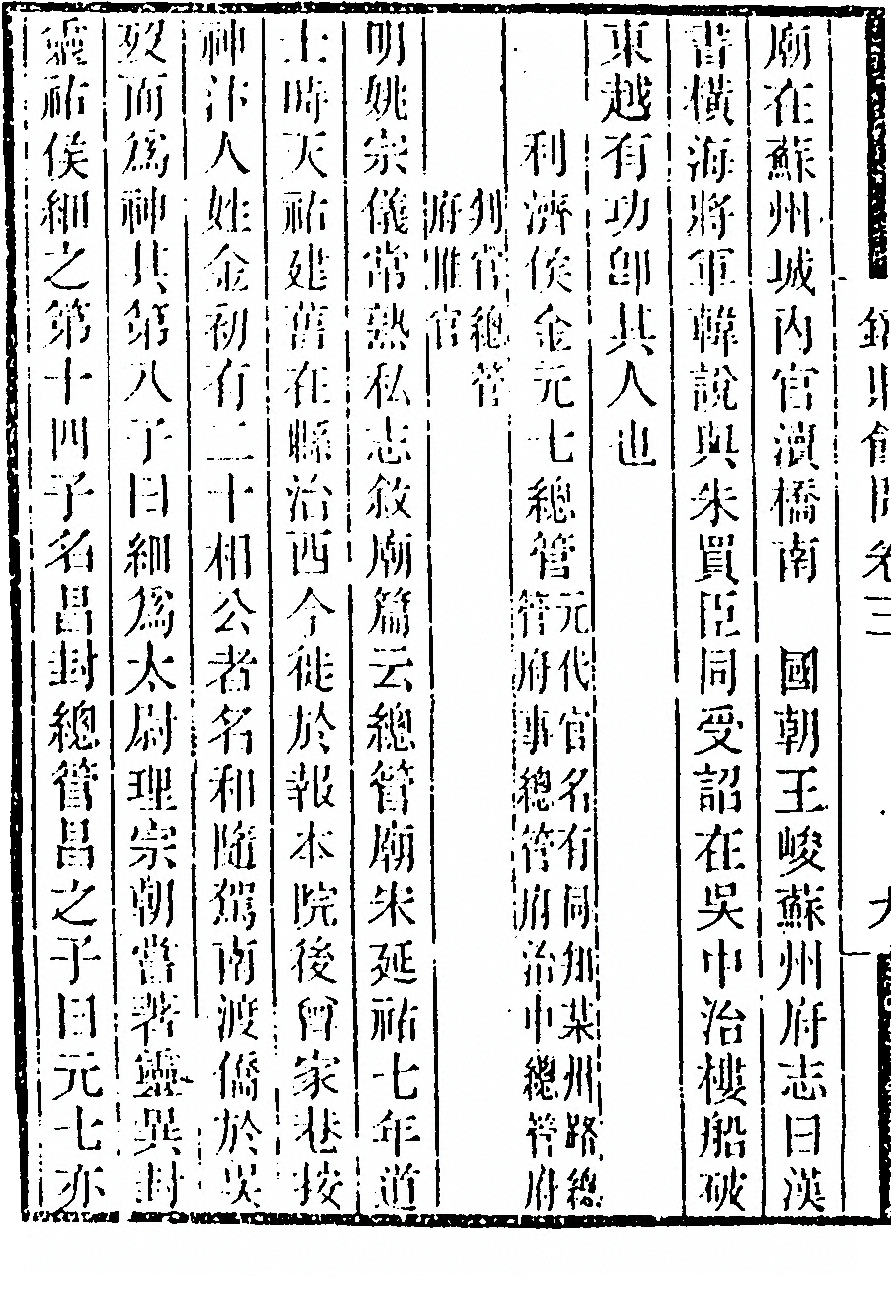 廟在蘇州城內官瀆橋南　國朝王峻蘇州府志曰漢
書橫海將軍韓說與朱買臣同受詔在吳中治樓船破
東越有功卽其人也
利濟侯金元七總管元代官名有同知某州路總
管府事總管府治中總管府
判官總管
府推官
明姚宗儀常熟私志敘廟篇云總管廟宋延祐七年道
士時天祐建舊在縣治西今徙於報本院後曾家巷按
神汴人姓金初有二十相公者名和隨駕南渡僑於吳
歿而爲神其第八子曰細爲太尉理宗朝嘗著靈異封
靈祐侯細之第十四子名昌封總管昌之子曰元七亦